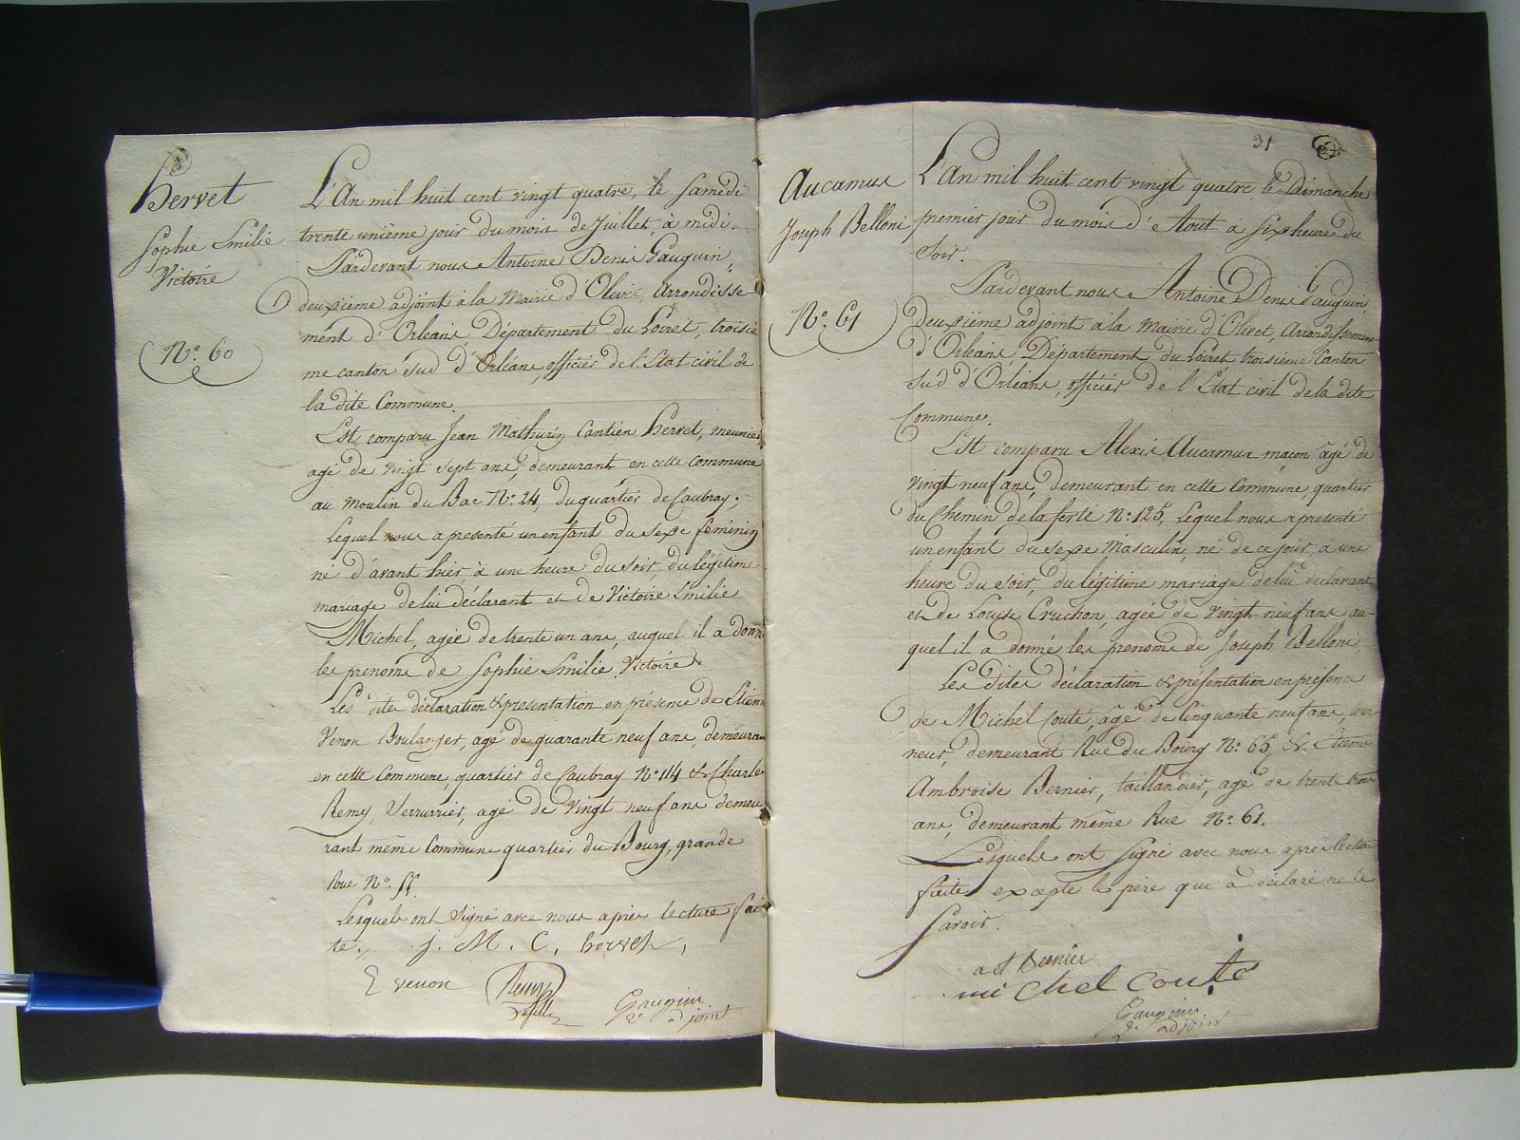 Hervet
Sophie Emilie
Victoire
No. 60
L'An mil huit cent vingt quatre, le Samedi
trente unième jour du mois de Juillet, à midi.
Pardevant nous Antoine Denis Gauguin,
deuxième adjoint à la Mairie d'Olivet, Arrondisse
ment d'Orléans, Département du Loiret, troisiè
me canton sud d'Orléans, officier de l'Etat civil de
la dite Commune.
Est comparu Jean Mathurin Cantien Hervet, meunier
agé de vingt sept ans, demeurant en cette Commune
au Moulin du Bac No. 24, du quartier de Caubray;
Lequel nous a presenté un enfant du sexe féminin
né d'avant hier à une heure du soir, du légitime
mariage de lui déclarant et de Victoire Emilie
Michel, agée de trente un ans, auquel il a donné
les prenoms de Sophie Emilie Victoire.
Les dites déclaration & presentation en présence de Etienne
Venon Boulanger, agé de quarante neuf ans, demeurant
en cette Commune, quartier de Caubray No. 114 & Charles
Remy Serrurier, agé de vingt neuf ans demeu
rant même Commune quartier du Bourg, grande
Rue No. 55.
Lesquels ont signé avec nous après lecture fai
te. J. M. C. hervet,
E venon Remy
Gauguin
2e adjoint
31
Aucamus
Joseph Belloni
No. 61
L'An mil huit cent vingt quatre le Dimanche
premier jour du mois d'Aout à six heures du
Soir.
Pardevant nous Antoine Denis Gauguin
Deuxième adjoint à la Mairie d'Olivet, Arrondissement
d'Orléans, Département du Loiret troisième Canton
Sud d'Orléans, officier de l'Etat civil de la dite
Commune.
Est comparu Alexis Aucamus maçon agé de
vingt neuf ans, demeurant en cette Commune, quartier
du Chemin de la ferté No. 125, Lequel nous a presenté
un enfant du sexe Masculin, né de ce jour, à une
heure du soir, du légitime mariage de lui declarant
et de Louise Cruchon, agée de vingt neuf ans au-
quel il a donné les prenoms de Joseph Belloni
Les dites déclaration & présentation en présence
de Michel Couté, agé de Cinquante neuf ans,
demeurant Rue du Bourg No. 65 & Etienne
Ambroise Bernier, taillandier, agé de trente trois
ans, demeurant même Rue No. 61.
Lesquels ont signé avec nous après lecture
faite excepté le père que a déclaré ne le
savoir.
Bernier
michel couté
Gauguin
2e adjoint